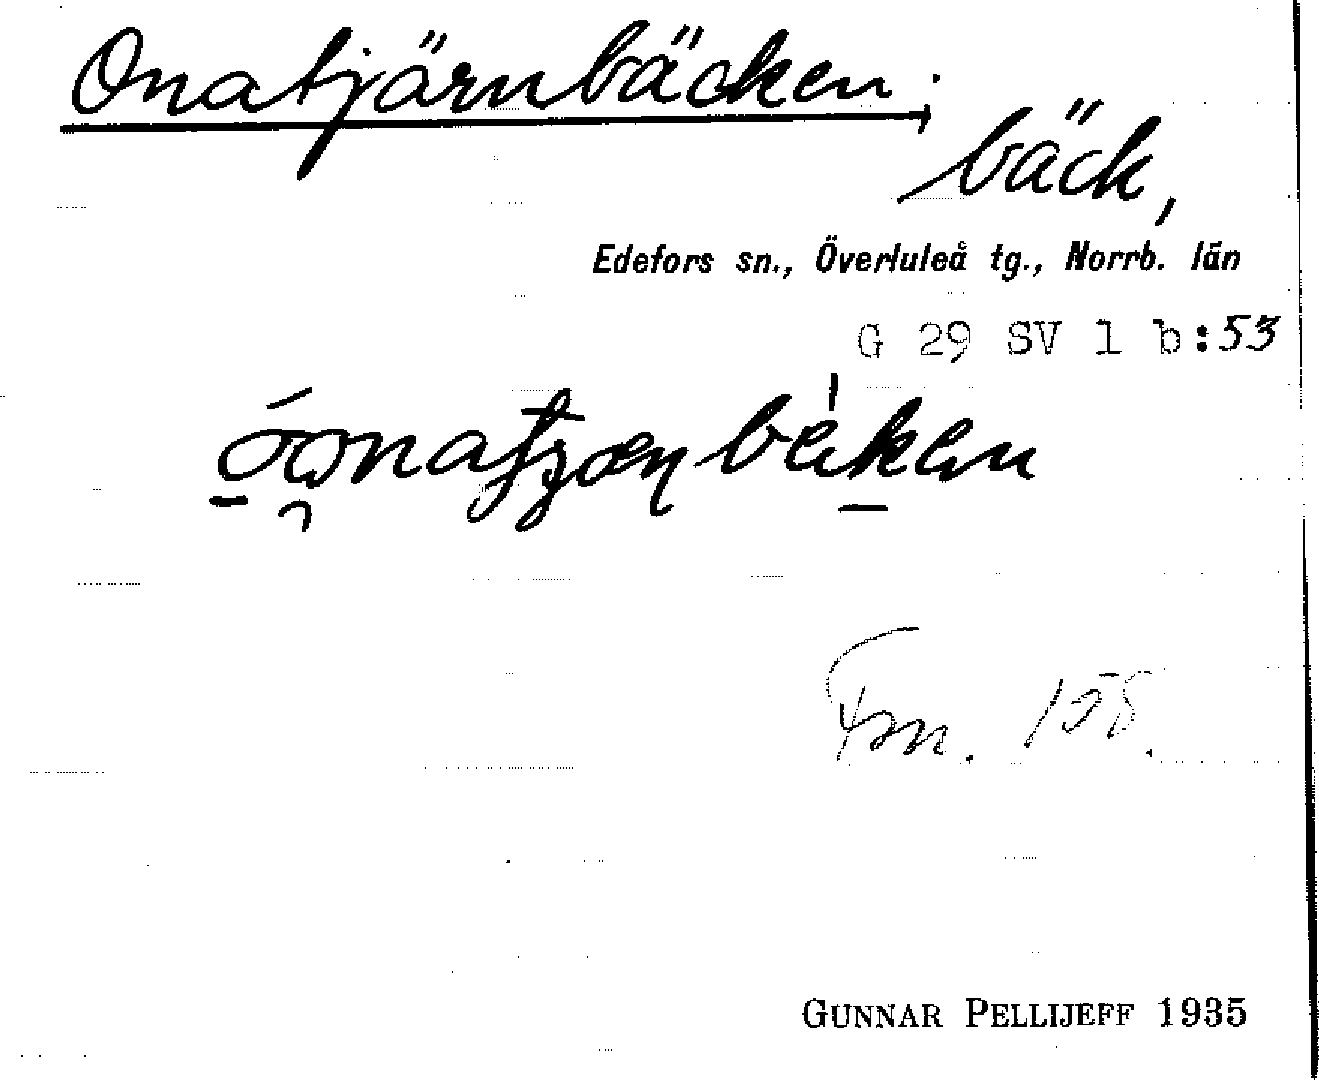 Onatjärnbäcken;
bäck,
Edefors sn., Överluleå tg., Norrb. län
G 29 SV 1 b:53
Fm. 155.
GUNNAR PELLIJEFF 1935